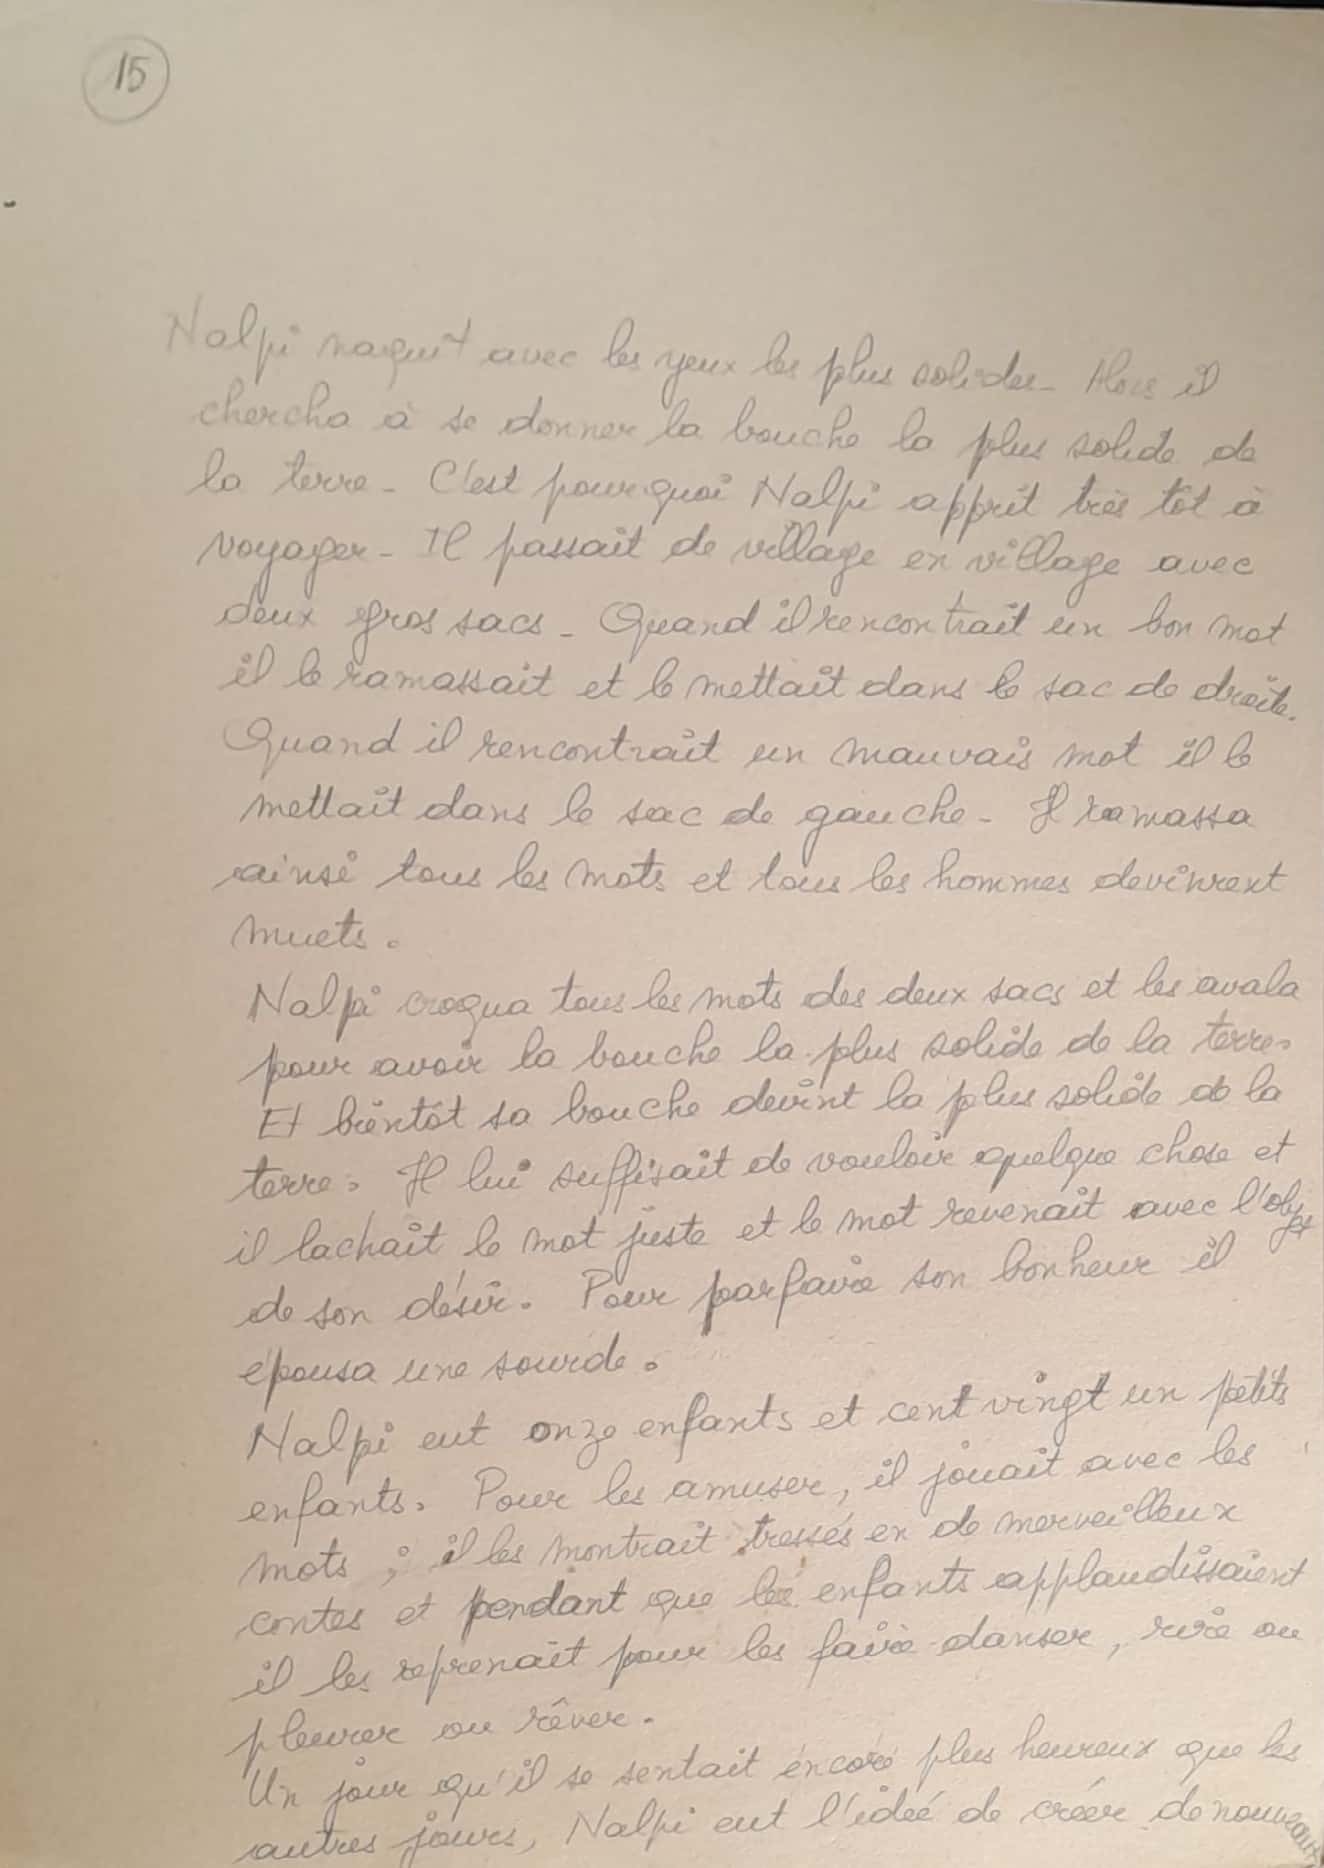 15
Nalpi naquit avec les yeux les plus solides - Alors il
chercha à se donner la bouche la plus solide de
la terre - C'est pourquoi Nalpi apprit très tôt à
voyager - Il passait de village en village avec
deux gros sacs - Quand il rencontrait un bon mot
il le ramassait et le mettait dans le sac de droite.
Quand il rencontrait un mauvais mot il le
mettait dans le sac de gauche - Il ramassa
ainsi tous les mots et tous les hommes devinrent
muets.
Nalpi croqua tous les mots des deux sacs et les avala
pour avoir la bouche la plus solide de la terre.
Et bientôt sa bouche devint la plus solide de la
terre. Il lui suffisait de vouloir quelque chose et
il lachait le mot juste et le mot revenait avec l'objet
de son désir. Pour parfaire son bonheur il
épousa une sourde.
Nalpi eut onze enfants et cent vingt un petits
enfants. Pour les amuser, il jouait avec les
mots ; il les montrait tressés en de merveilleux
contes et pendant que les enfants applaudissaient
il les reprenait pour les faire danser, rire ou
pleurer ou rêver.
Un jour qu'il se sentait encore plus heureux que les
autres jours, Nalpi eut l'idée de créer de nouveaux